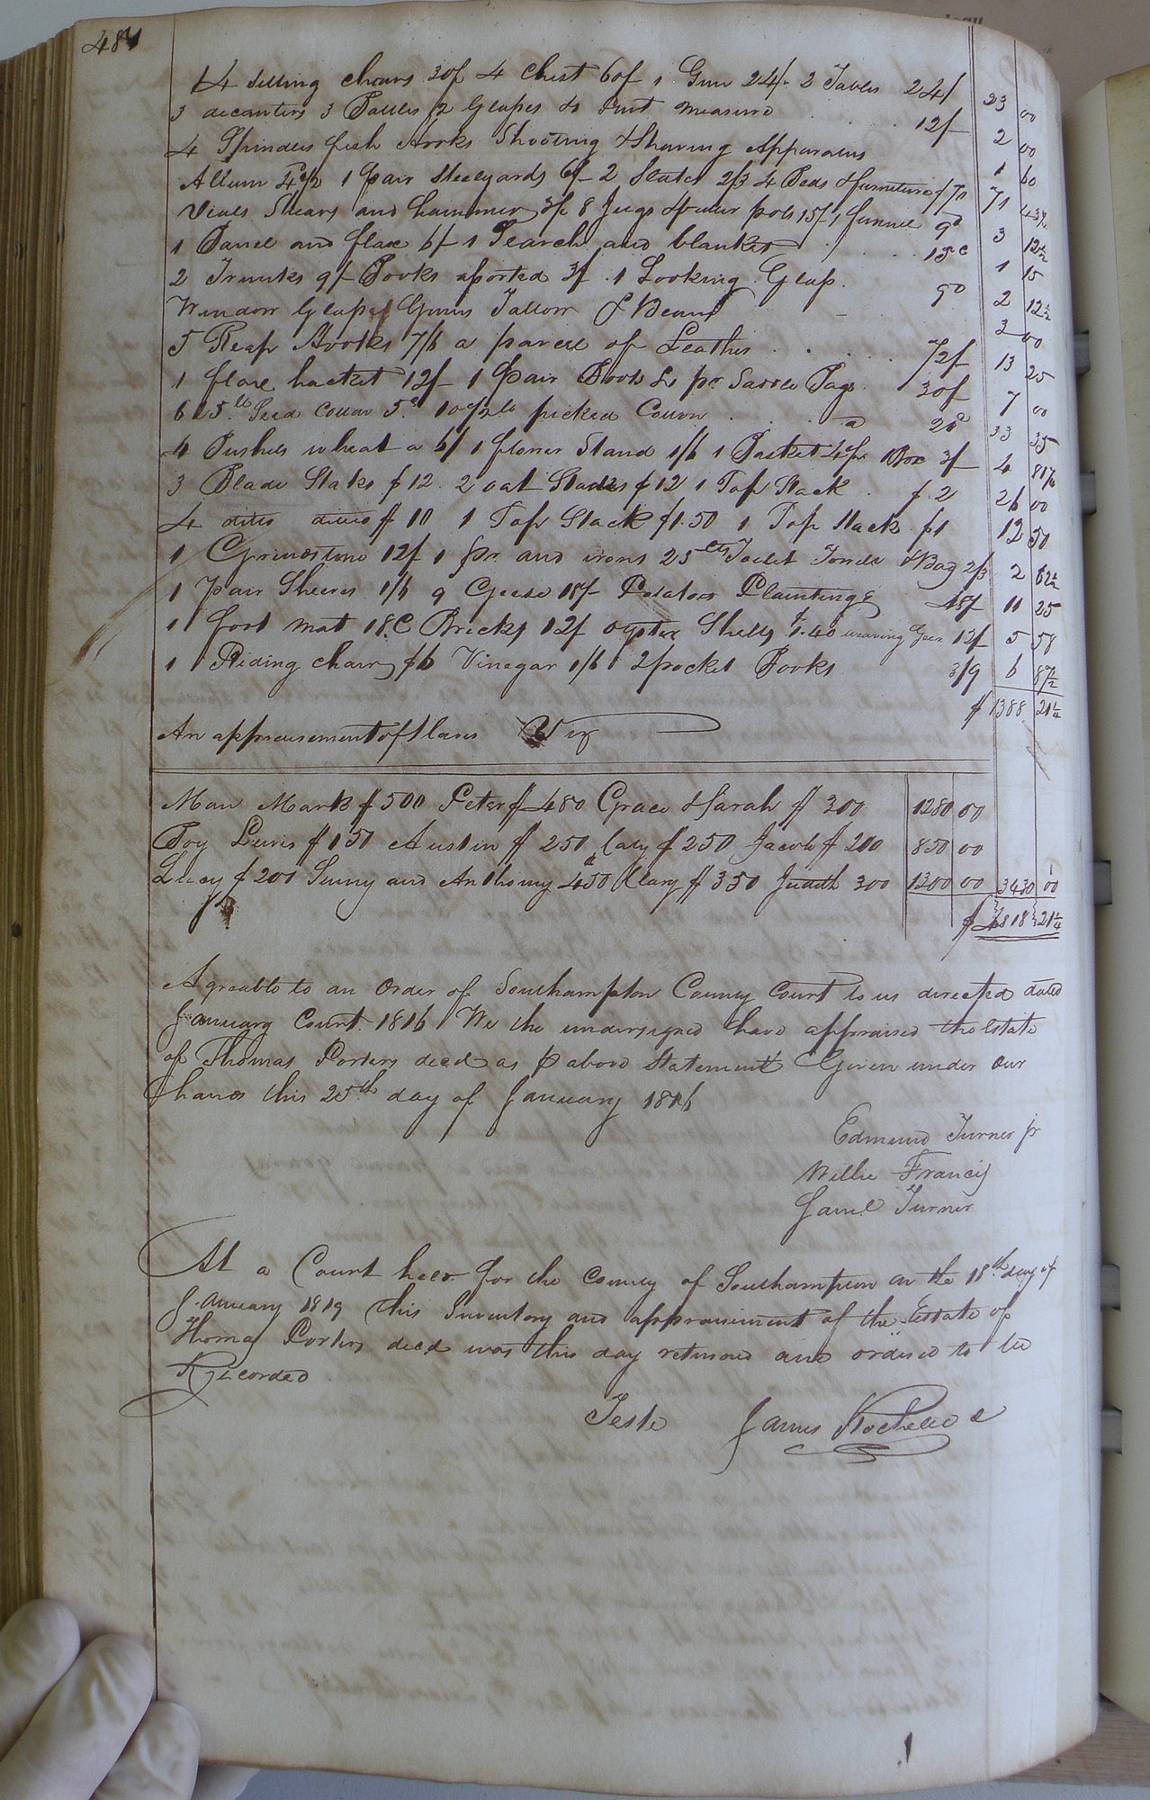 484
14 Setting chairs 30/ 4 Chest 60/ 1 Gun 24/- 2 Tables 24/ 23 00
3 decanters 3 Bottles 12 Glasses & pint measure 12/- 2 00
4 Spindles fish Hooks Shooting & Shaving Apparatus 1 60
Allum 1 pair Steelyards 6/- 2 Slates 2/3 4 Beds & furniture $70 71
Vials Shears and hammer 3/ 8 Jugs & puter pots 15/- 1 funnel 9d 3 12½
1 Barrel and flax 6/- 1 Search and blanket 15c 1 15
2 Trunks 9/- Books asorted 3/ 1 Looking Glass 9d 2 12½
Window Glasses Tallow & Beans 3 00
5 Reap Hooks 7/6 a parcel of Leather 72/- 13 25
1 flax hacket 12/- 1 pair Boots & pr Saddle Bags 30/ 7 00
615 lb Seed Cotton 5c lb picked Cotton a 33 35
4 Bushels wheat a 6/ 1 flower Stand 1/6 1 Basket 1 Box 3/ 4
3 Blade Staks $12 2 oat Stacks $12 1 Top Stack $2 26 00
4 ditto ditto $10 1 Top Stack $1.50 1 Top Stack $1 12 50
1 Grindstone 12/ 1 pr. and irons 25 cts & Bag 2/3 2 62½
1 pair Sheers 1/6 9 Geese 18/- Potatoes Plantings 18/- 11 25
1 foot mat 18 C Bricks 12/ oyster Shells $1.40 weaving Gear 12/- 5 58
1 Riding chair $6 Vinegar 1/6 2 pocket Books 3/9 6 87½
$1388 21¼
An appraisement of Slaves Viz
Man Mark $500 Peter $480 Grace & Sarah $300 1280 00
Boy Lewis $150 Austin $250 Caty $250 Jacob $200 850 00
Lucy $200 and Anthony 450 Clary $350 Judith 300 1300 00 3430 00
$4818 21¼
Agreable to an Order of Southampton County Court to us directed dated
January Court 1816 We the undersigned have appraised the Estate
of Thomas Porters decd as p above Statement Given under our
hands this 25th day of January 1816
Edmund Turner jr
Willie Francis
Saml Turner
At a Court held for the County of Southampton on the 18th day of
January 1819 this Inventory and appraisement of the Estate of
Thomas Porters decd was this day returned and ordered to be
Recorded
Teste James Rochelle C